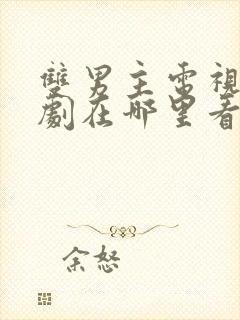 雙男主電視
劇在哪里看
余怒